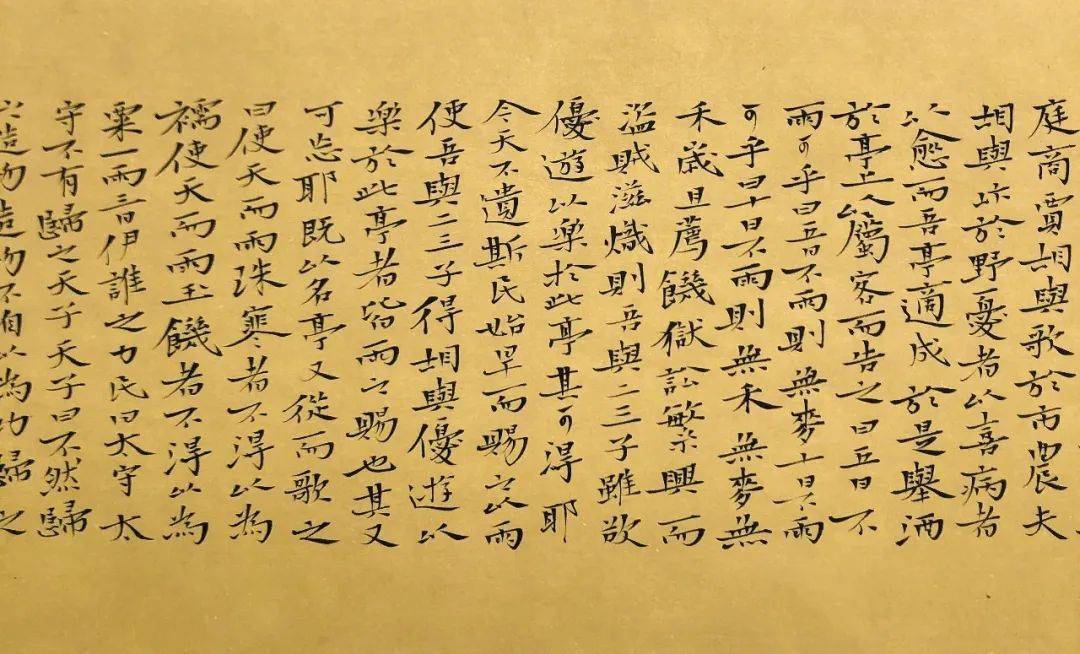 庭商賈相與歌於市農夫
相與忭於野憂者以喜病者
以愈而吾亭適成於是舉酒
於亭上以屬客而告之曰五日不
雨可乎曰五日不雨則無麥十日不雨
可乎曰十日不雨則無禾無麥無
禾歲且薦饑獄訟繁興而
盜賊滋熾則吾與二三子雖欲
優遊以樂於此亭其可得耶
今天不遺斯民始旱而賜之以雨
使吾與二三子得相與優遊以
樂於此亭者皆雨之賜也其又
可忘耶既以名亭又從而歌之
曰使天而雨珠寒者不得以為
襦使天而雨玉饑者不得以為
粟一雨三日伊誰之力民曰太守太
守不有歸之天子天子曰不然歸
之造物造物不自以為功歸之